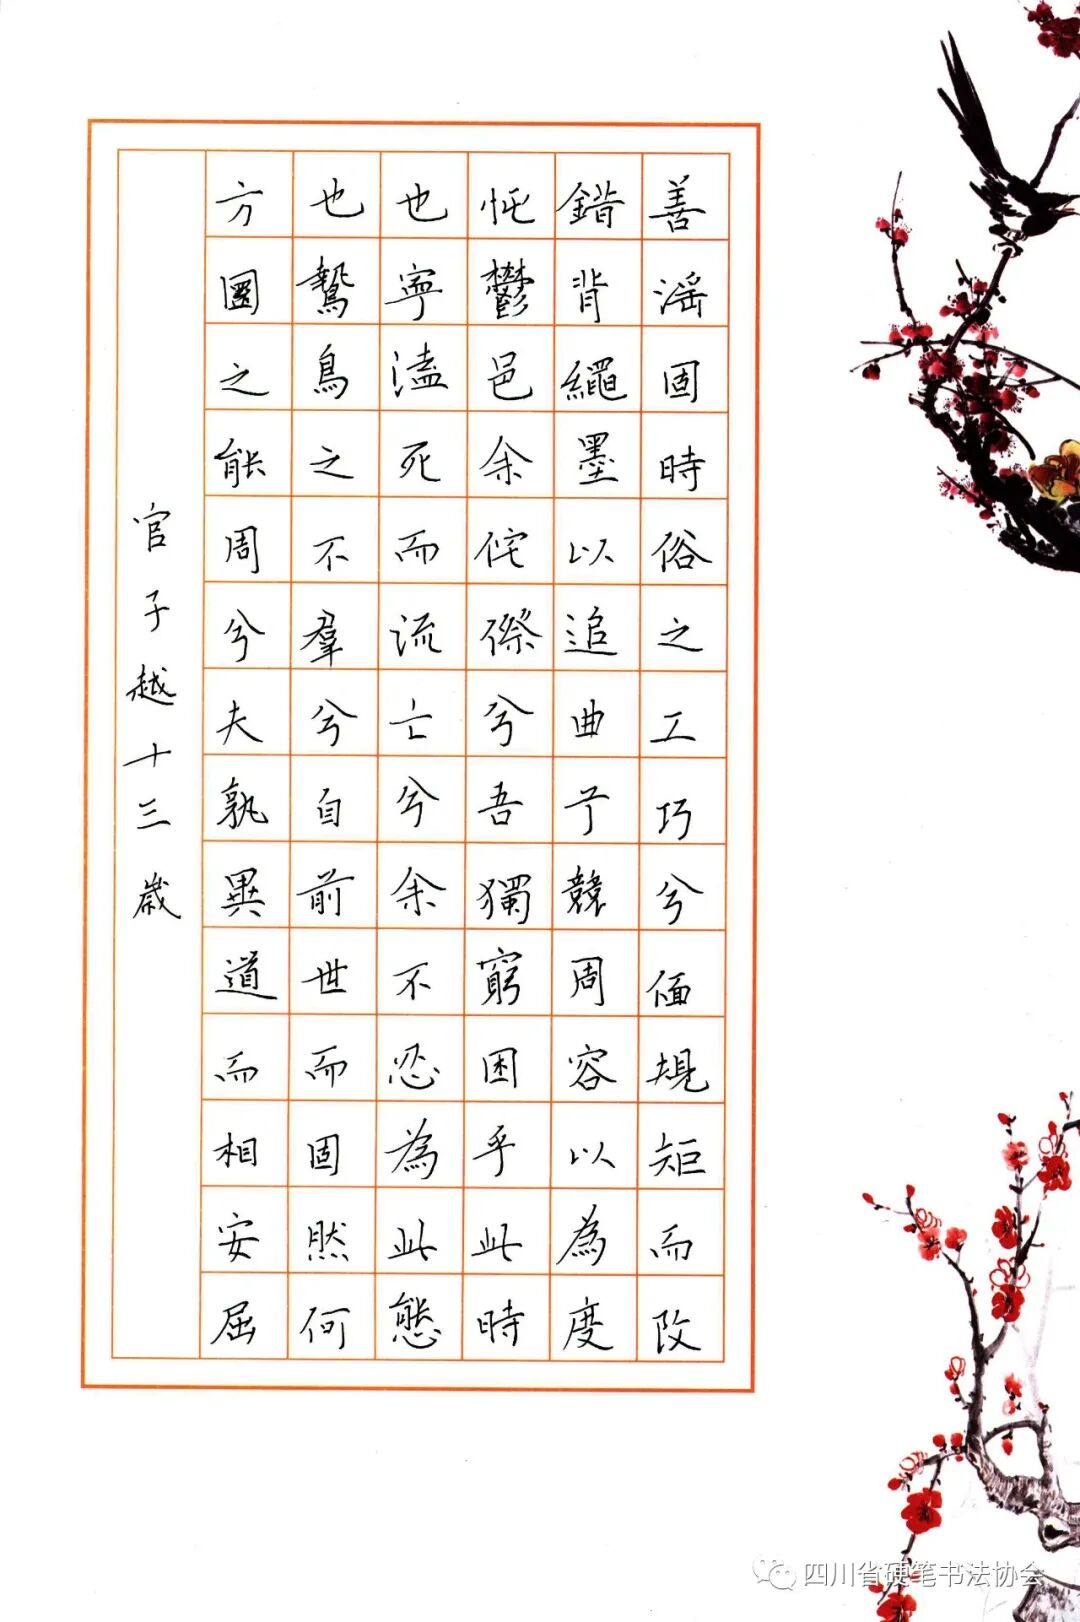 善淫固時俗之工巧兮偭規矩而改
錯背繩墨以追曲兮競周容以為度
忳鬱邑余侘傺兮吾獨窮困乎此時
也寧溘死而流亡兮余不忍為此態
也鷙鳥之不羣兮自前世而固然何
方圜之能周兮夫孰異道而相安屈
官子越十三歲
四川省硬笔书法协会